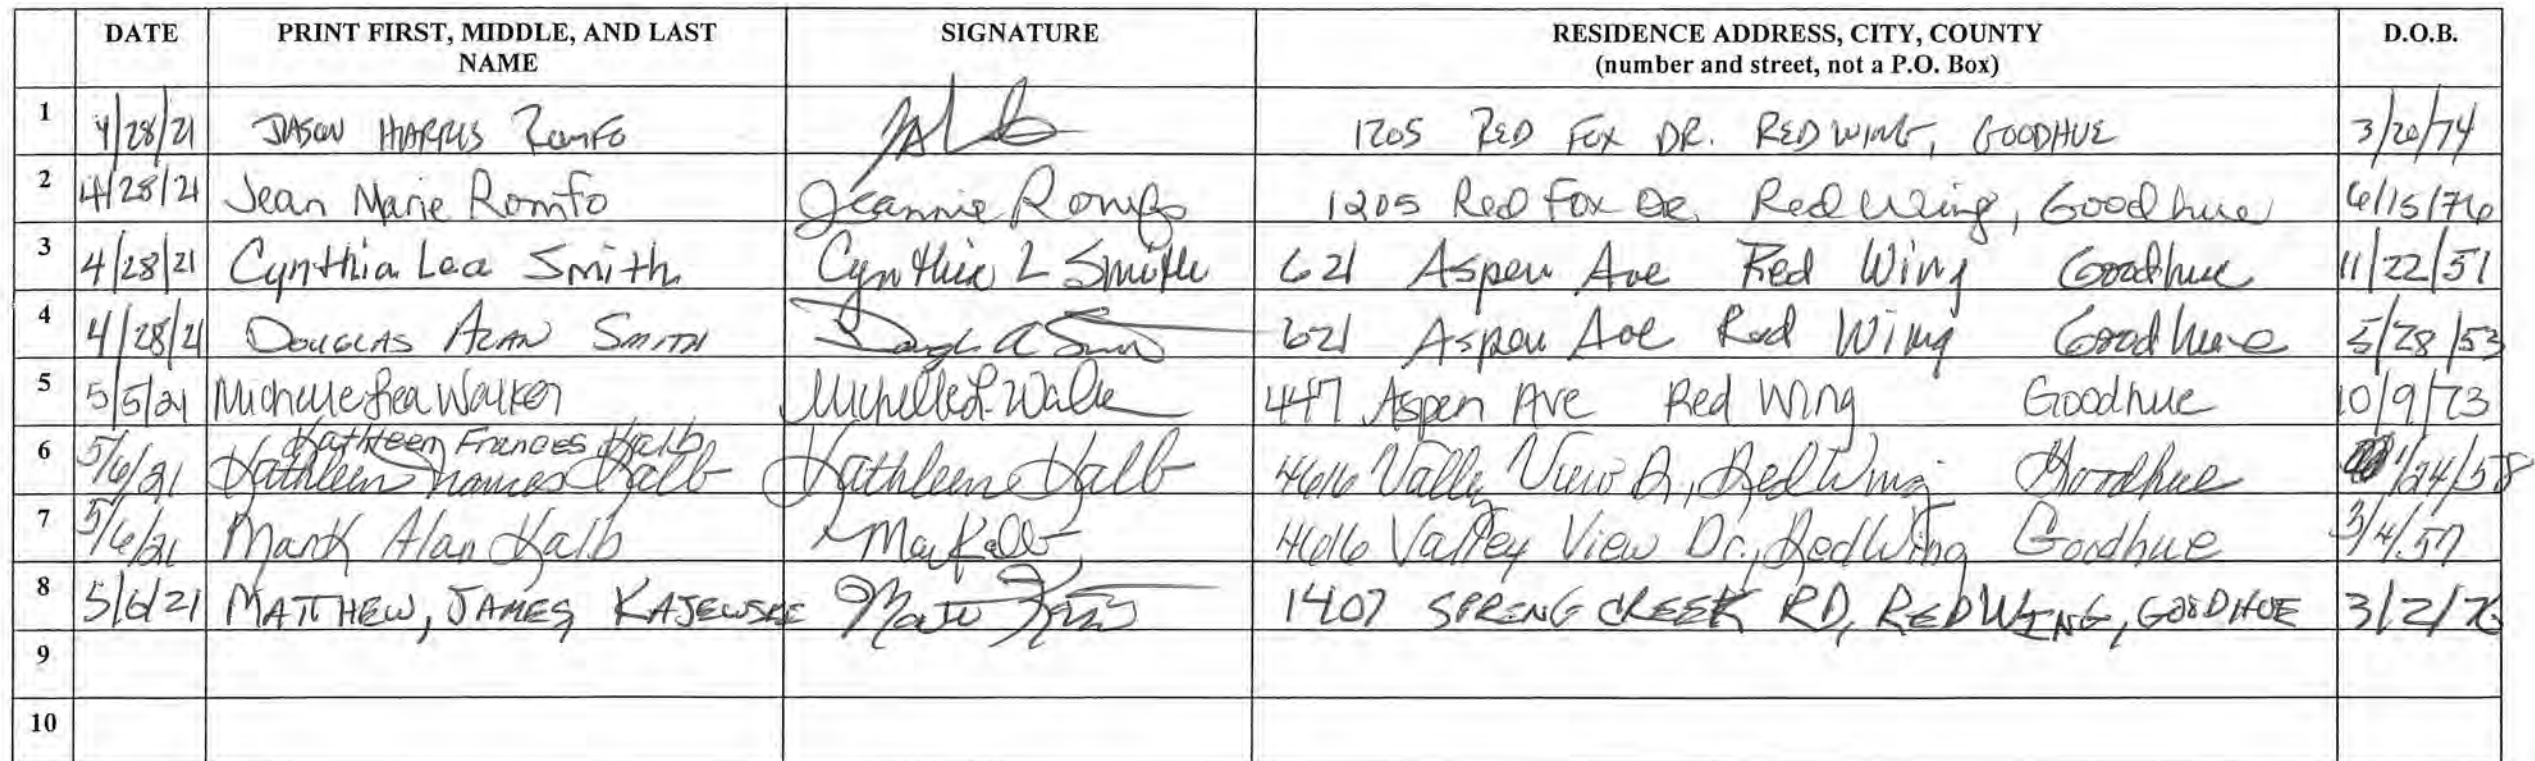 DATE PRINT FIRST, MIDDLE, AND LAST NAME SIGNATURE RESIDENCE ADDRESS, CITY, COUNTY (number and street, not a P.O. Box) D.O.B.
1 4/28/21 JASON HARRIS Romfo 1205 RED FOX DR. RED WING, GOODHUE 3/20/74
2 4/28/21 Jean Marie Romfo Jeannie Romfo 1205 Red Fox Dr. Red Wing, Goodhue 6/15/76
3 4/28/21 Cynthia Lea Smith Cynthia L Smith 621 Aspen Ave Red Wing Goodhue 11/22/51
4 4/28/21 DOUGLAS ALAN SMITH 621 Aspen Ave Red Wing Goodhue 5/28/53
5 5/5/21 Michelle Lea Walker Michelle L. Walker 447 Aspen Ave Red Wing Goodhue 10/9/73
6 5/6/21 Kathleen Frances Kalb
Kathleen Frances Kalb Kathleen Kalb 4616 Valley View Dr, Red Wing Goodhue 1/24/58
7 5/6/21 Mark Alan Kalb Mark Kalb 4616 Valley View Dr., Red Wing Goodhue 3/4/57
8 5/6/21 MATTHEW, JAMES, KAJEWSKI 1407 SPRING CREEK RD, RED WING, GOODHUE 3/2/76
9
10